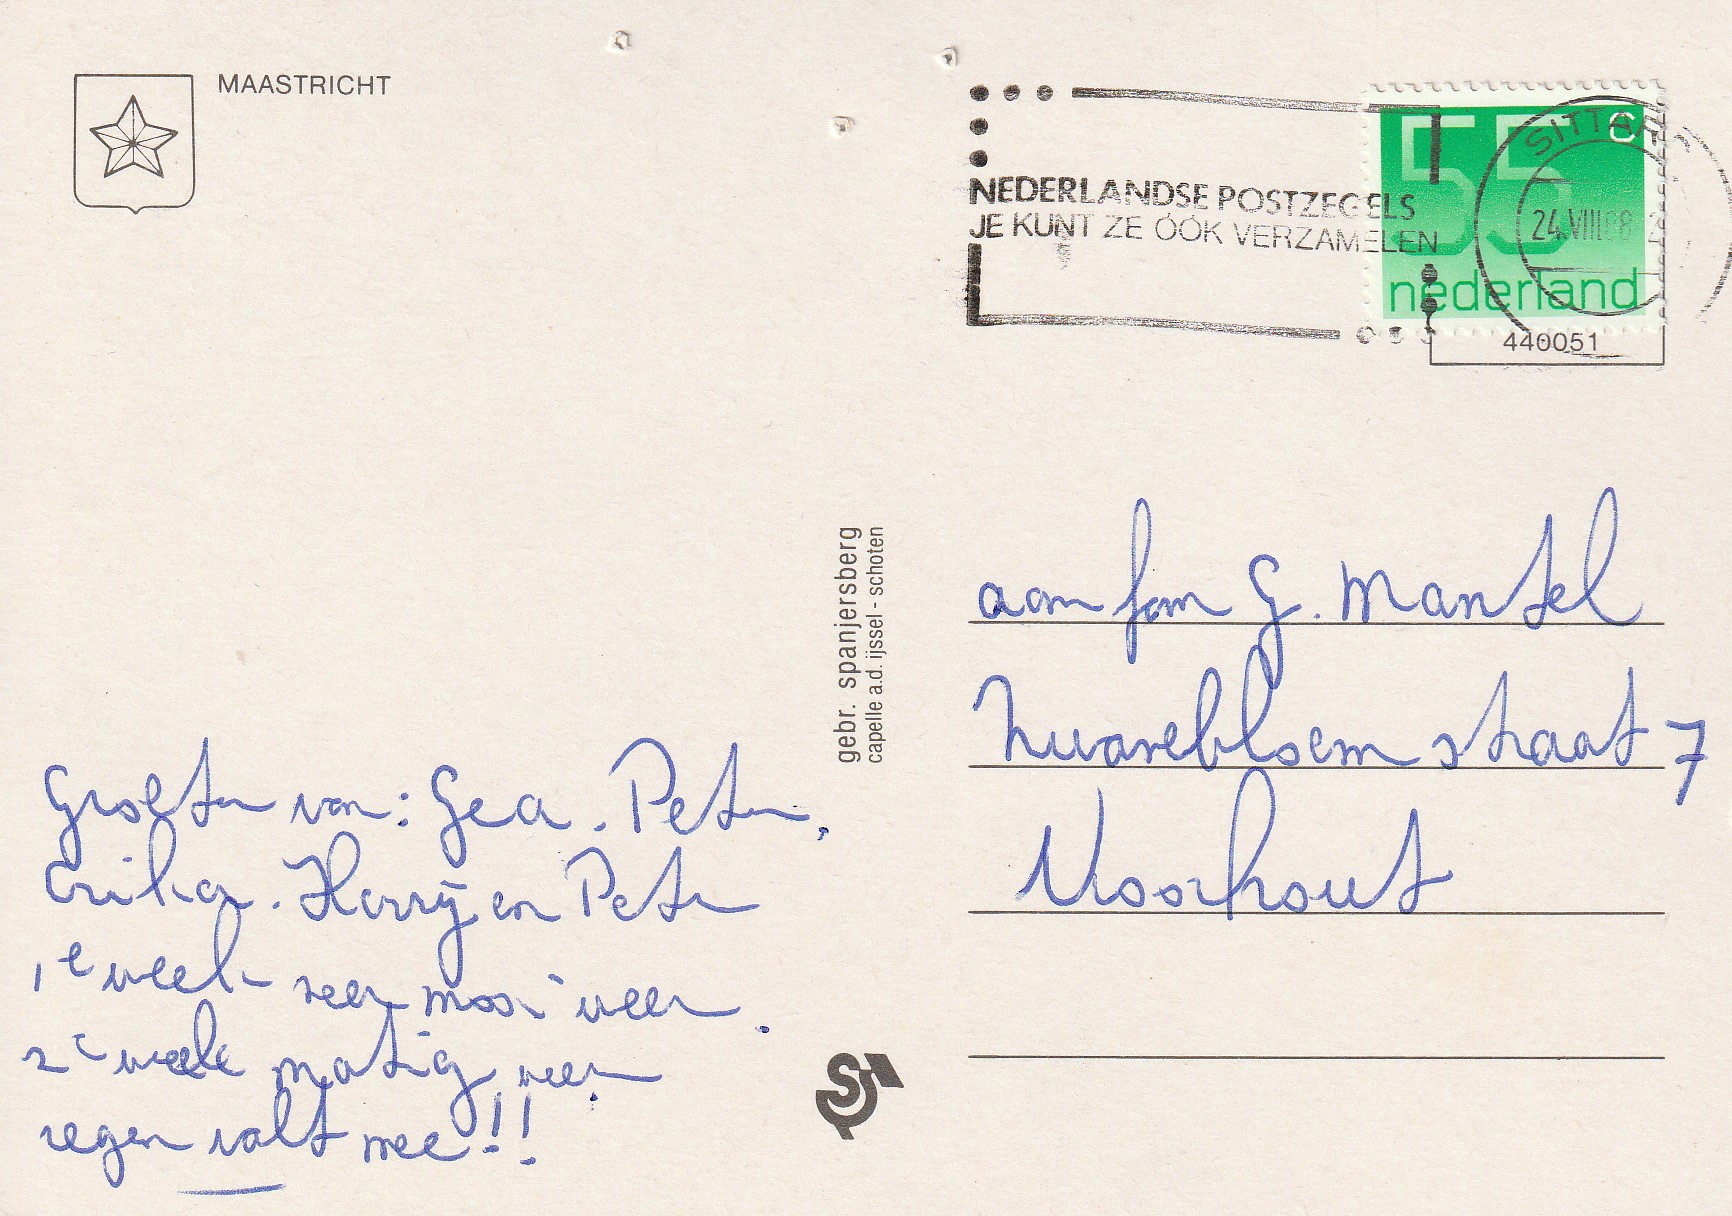 MAASTRICHT
Groeten van: Gea. Peter,
Erika. Harrÿ en Peter
1e week zeer mooi weer.
2e week matig weer.
regen valt mee!!
gebr. spanjersberg
capelle a.d. ijssel - schoten
NEDERLANDSE POSTZEGELS
JE KUNT ZE ÓÓK VERZAMELEN
55 c
nederland
SITTARD
24.VIII.88
440051
aan fam G. Mantel
Zwanebloemstraat 7
Voorhout